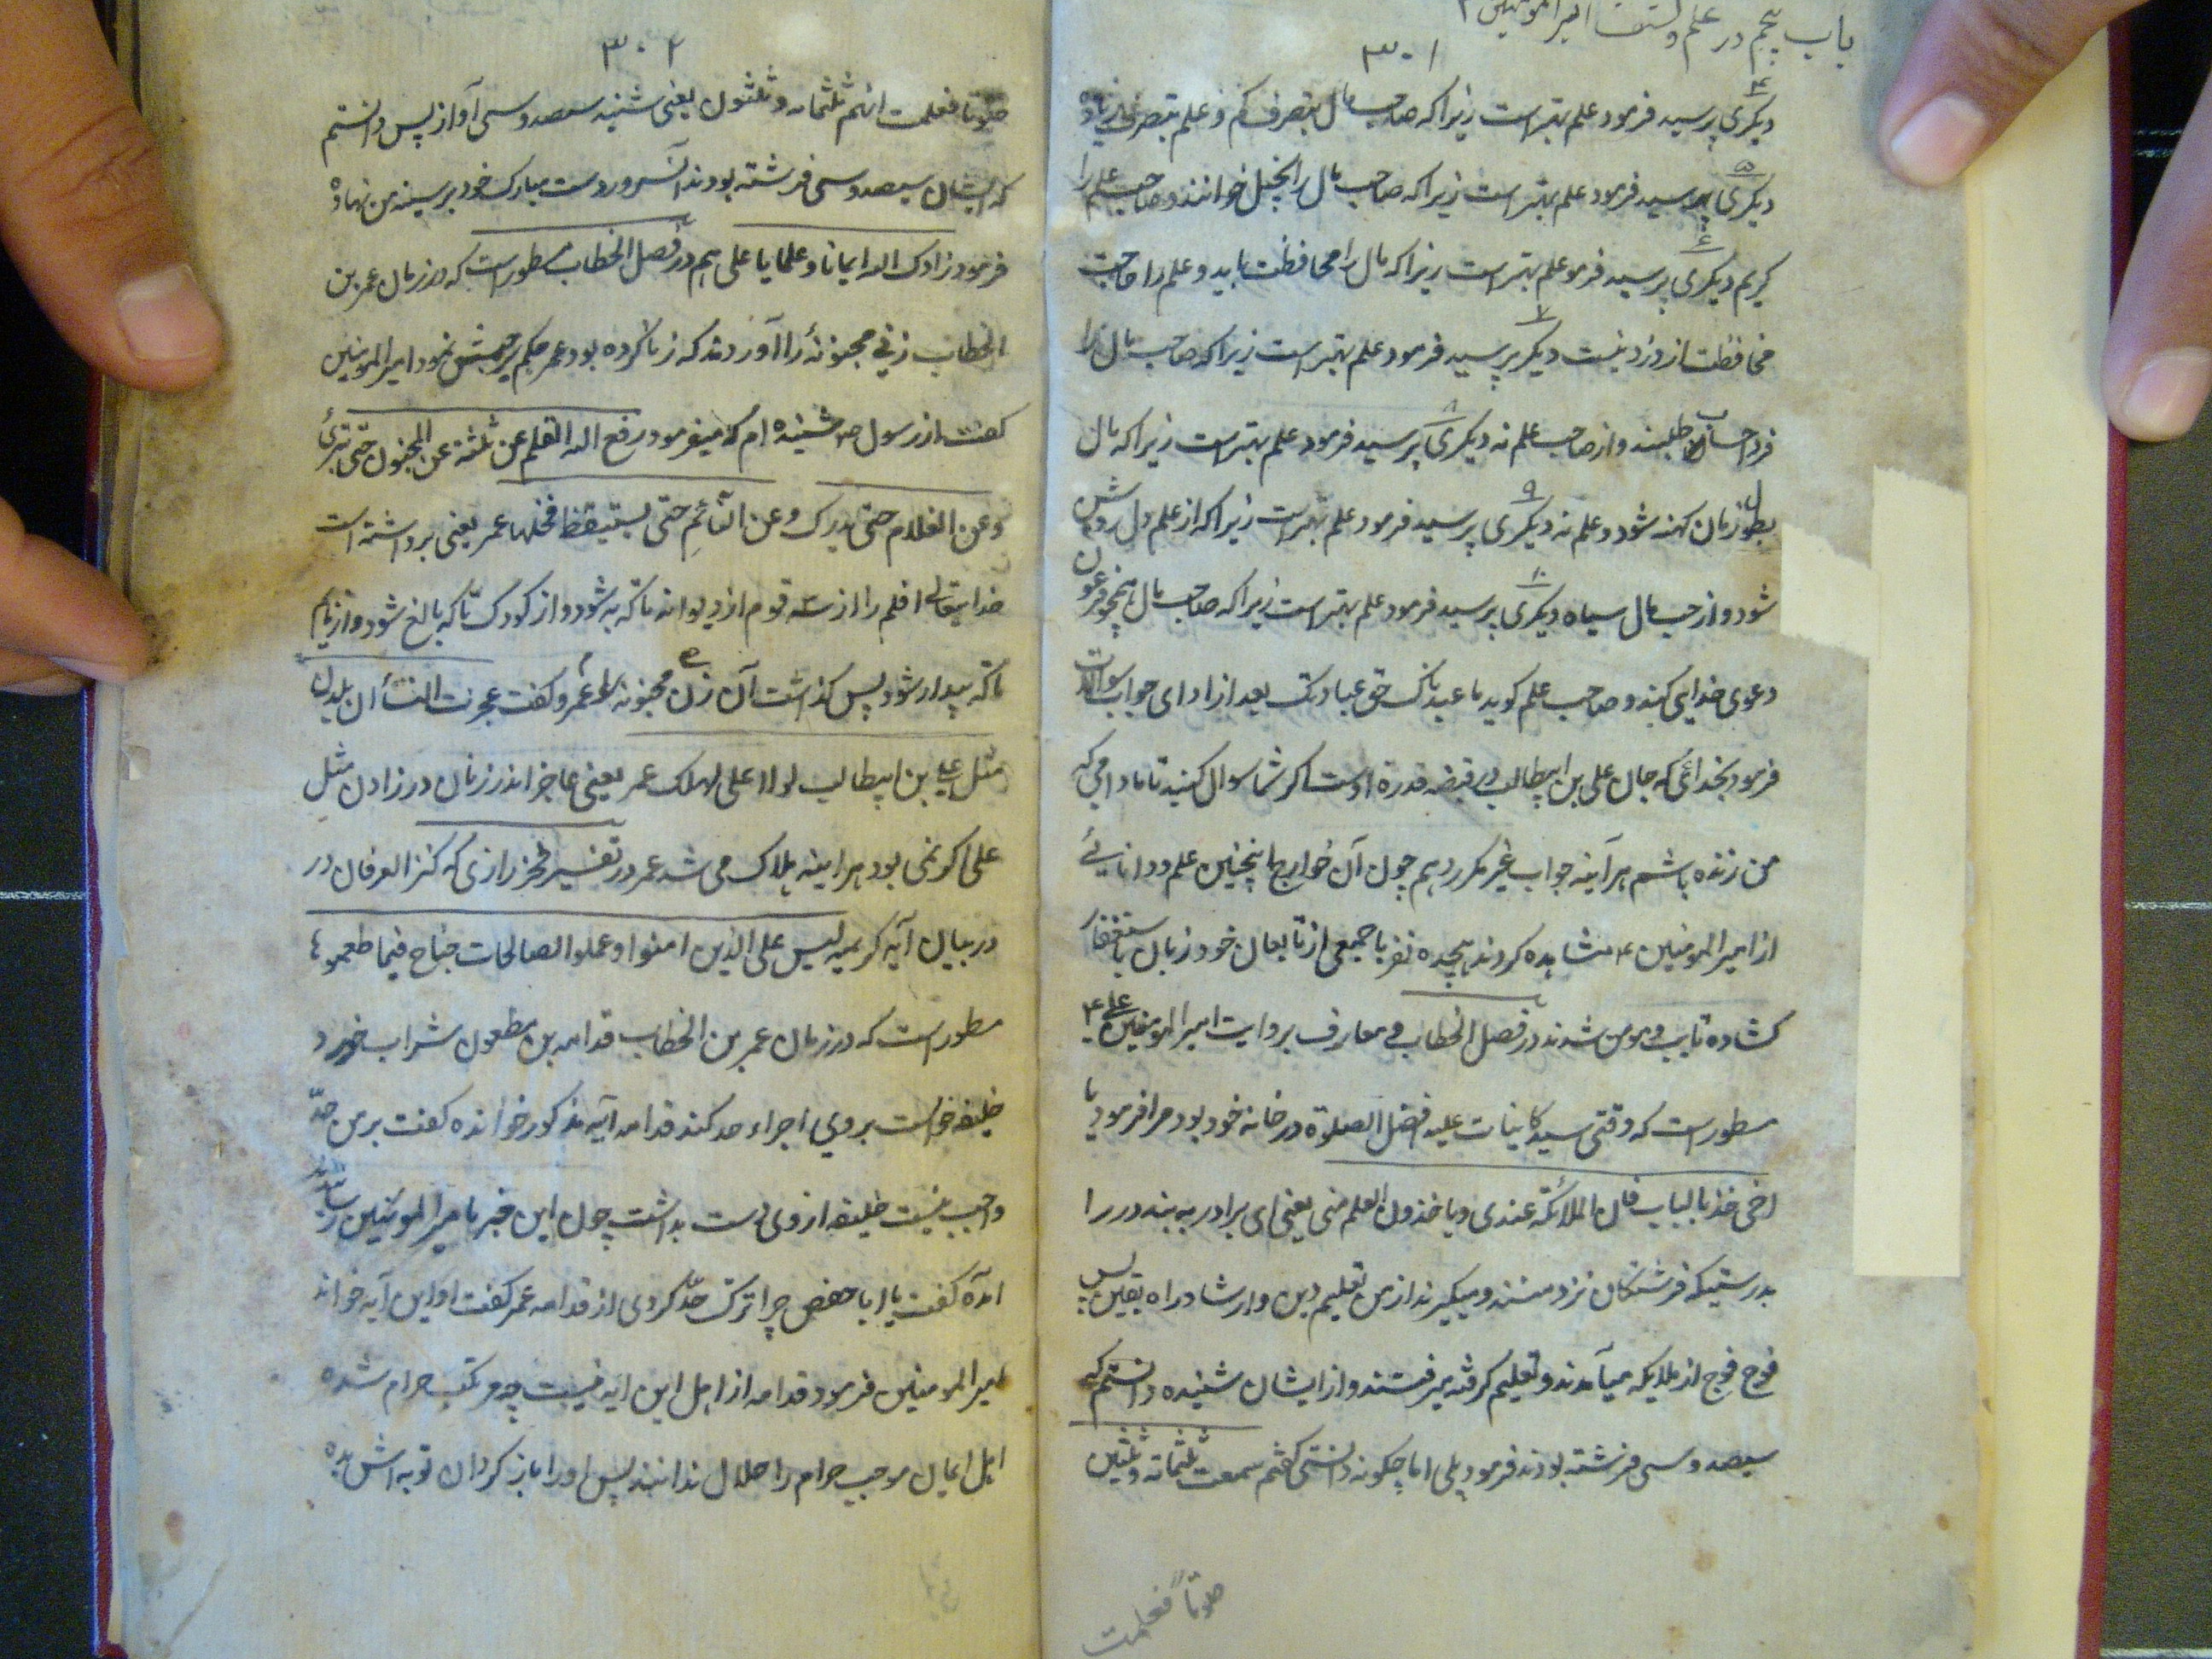 باب پنجم در علم و کشف امیر المومنین ۴
۳۰۱
۴
دیکری پرسید فرمود علم بهتر است زیرا که صاحب مال بتصرف کم و علم بتصرف زیاده
۵
دیکری پرسید فرمود علم بهتر است زیرا که صاحب مال را بخیل خوانند و صاحب علم را
۶
کریم دیکری پرسید فرمود علم بهتر است زیرا که مال را محافظت باید و علم را حاجت
۷
محافظت از دزد نیست دیکر پرسید فرمود علم بهتر است زیرا که صاحب مال را
۸
فردا حساب طلبند و از صاحب علم نه دیکری پرسید فرمود علم بهتر است زیرا که مال
۹
بطول زمان کهنه شود و علم نه دیکری پرسید فرمود علم بهتر است زیرا که از علم دل روشن
۱۰
شود و از حب مال سیاه دیکری پرسید فرمود علم بهتر است زیرا که صاحب مال همچو فرعون
دعوی خدایی کند و صاحب علم کوید ما عبدناک حق عبادتک بعد از ادای جواب سوالات
فرمود بخدائی که جان علی بن ابیطالب در قبضه قدرة اوست اکر شما سوال کنید تا مادامی که
من زنده باشم هر آینه جواب غیر مکرر دهم چون آن خوارج اینچنین علم و دانائے
از امیر المومنین ۴ مشاهده کردند هیجده نفر با جمیعی از تابعان خود زبان باستغفار
کشاده تایب و مومن شدند در فصل الخطاب و معارف بروایت امیر المومنین علی ۴
مسطور است که وقتی سید کاینات علیه افضل الصلوة در خانه خود بود مرا فرمود یا
اخی خذ بالباب فان الملائکة عندی ویاخذون العلم منی یعنی ای برادر به بند در را
بدرستیکه فرشتکان نزد منند و میکیرند از من تعلیم دین و ارشاد راه یقین پس
فوج فوج از ملایکه میآمدند و تعلیم کرفته میرفتند و از ایشان شنیده دانستم که
سیصد و سی فرشته بودند فرمود یلی اما چکونه دانستی کفتم سمعت ثلثمائة وثلثین
صوتاً فعلمت
۳۰۲
صوتا فعلمت انهم ثلثمائه وثلثون یعنی شنیدم سیصد و سی آواز پس دانستم
که ایشان سیصد و سی فرشته بودند آنسرور دست مبارک خود بر سینه من نهاد
فرمود زادک الله ایمانا و علما یا علی هم در فصل الخطاب مسطور است که در زمان عمر بن
الخطاب زنی مجنونه را آوردند که زنا کرده بود عمر حکم برجمش نمود امیر المومنین
کفت از رسول ص شنیده ام که میفرمود رفع الله القلم عن ثلثة عن المجنون حتی تبرئ
وعن الغلام حتی یدرک وعن النائم حتی یستیقظ فخلها عمر یعنی برداشته است
خدایتعالی قلم را از سه قوم از دیوانه تا که به شود و از کودک تا که بالغ شود و از نایم
تا که بیدار شود پس کذاشت آن زن مجنونه را عمر و کفت عجزت النساء ان یلدن
مثل علی بن ابیطالب لولا علی لهلک عمر یعنی عاجز اند زنان در زادن مثل
علی اکر نمی بود هراینه هلاک می شد عمر در تفسیر فخر رازی که کنز العرفان در
در بیان آیه کریمه لیس علی الذین امنوا وعملوا الصالحات جناح فیما طعموا ها
مسطور است که در زمان عمر بن الخطاب قدامه بن مظعون شراب خورد
خلیفه خواست بروی اجراء حد کند قدامه آیه مذکور خوانده کفت بر من حدّ
واجب نیست خلیفه از وی دست بداشت چون این خبر بامیر المومنین رسید
آمده کفت یا ابا حفص چرا ترک حدّ کردی از قدامه عمر کفت او این آیه خواند
امیر المومنین فرمود قدامه از اهل این ایه نیست چه مرتکب حرام شده
اهل ایمان موجب حرام را حلال ندانند پس او را باز کردان توبه اش بده